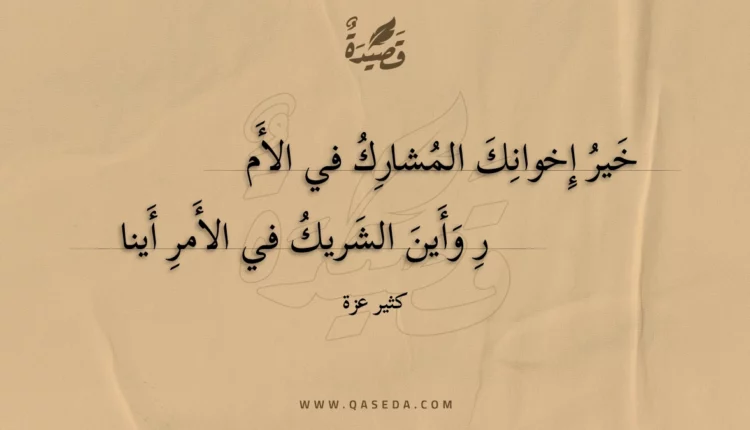 قَصِيدَةٌ
خَيرُ إِخوانِكَ المُشارِكُ في الأَم
رِ وَأَينَ الشَريكُ في الأَمرِ أَينا
كثير عزة
WWW.QASEDA.COM